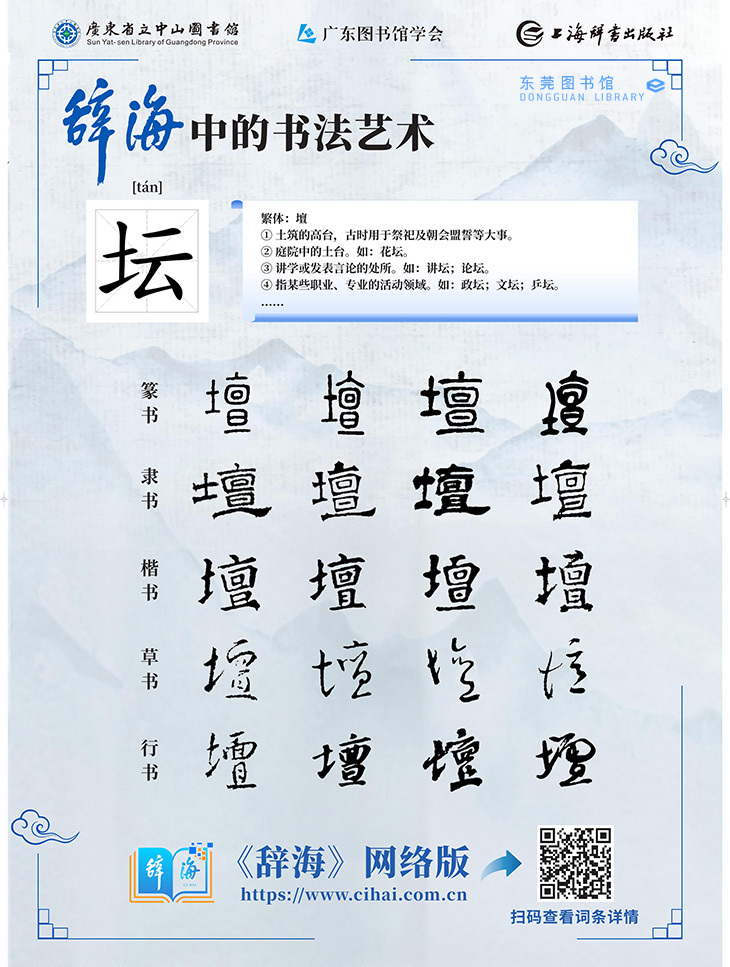 廣東省立中山圖書館
Sun Yat-sen Library of Guangdong Province
广东图书馆学会
上海辞书出版社
东莞图书馆
DONGGUAN LIBRARY
辞海中的书法艺术
[tán]
坛
繁体：壇
① 土筑的高台，古时用于祭祀及朝会盟誓等大事。
② 庭院中的土台。如：花坛。
③ 讲学或发表言论的处所。如：讲坛；论坛。
④ 指某些职业、专业的活动领域。如：政坛；文坛；乒坛。
……
篆书 壇 壇 壇 壇
隶书 壇 壇 壇 壇
楷书 壇 壇 壇 壇
草书 壇 壇 壇 壇
行书 壇 壇 壇 壇
辞海
《辞海》网络版
https://www.cihai.com.cn
扫码查看词条详情